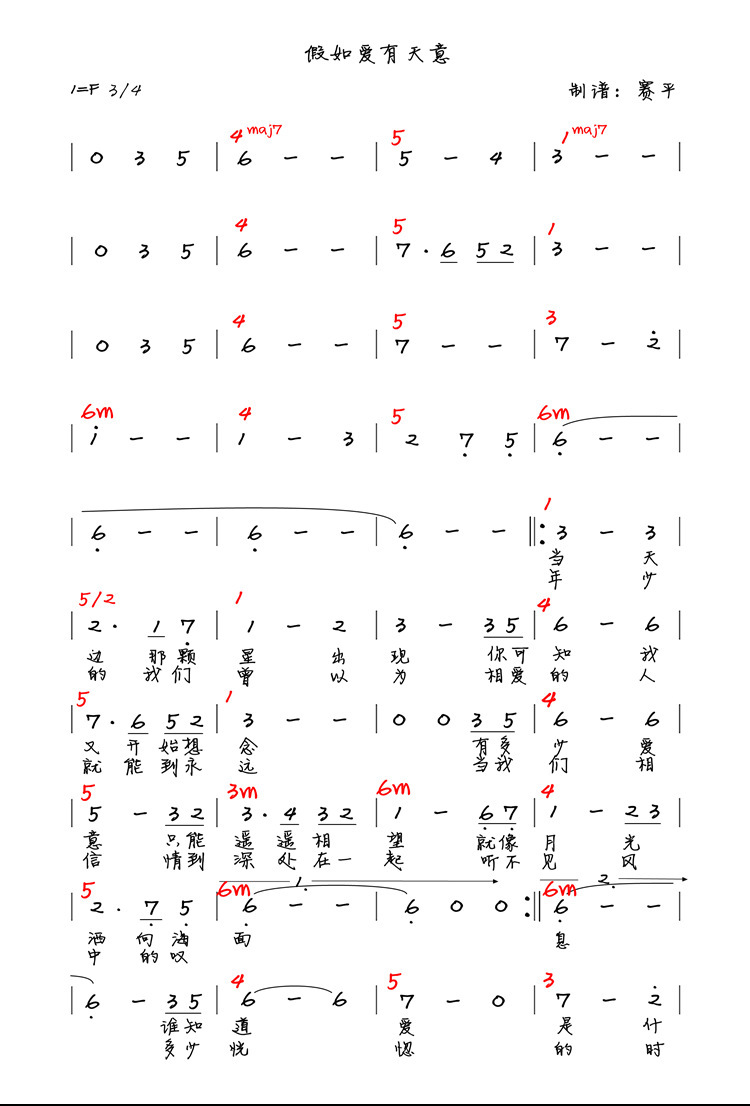 假如爱有天意
1=F 3/4 制谱：赛平
4maj7 5 1maj7
| 0 3 5 | 6 - - | 5 - 4 | 3 - - |
4 5 1
| 0 3 5 | 6 - - | 7 · 6 5 2 | 3 - - |
4 5 3
| 0 3 5 | 6 - - | 7 - - | 7 - 2 |
6m 4 5 6m
| 1 - - | 1 - 3 | 2 7 5 | 6 - - |
1
| 6 - - | 6 - - | 6 - - ‖: 3 - 3 |
当 天
年 少
5/2 1 4
| 2 · 1 7 | 1 - 2 | 3 - 3 5 | 6 - 6 |
边 那颗 星 出 现 你可 知 我
的 我们 曾 以 为 相爱 的 人
5 1 4
| 7 · 6 5 2 | 3 - - | 0 0 3 5 | 6 - 6 |
又 开 始想 念 有多 少 爱
就 能 到永 远 当我 们 相
5 3m 6m 4
| 5 - 3 2 | 3 · 4 3 2 | 1 - 6 7 | 1 - 2 3 |
意 只能 遥 遥 相 望 就像 月 光
信 情到 深 处 在一 起 听不 见 风
1. 2.
5 6m 6m
| 2 · 7 5 | 6 - - | 6 0 0 :‖ 6 - - |
洒 向 海 面 息
中 的 叹
4 5 3
| 6 - 3 5 | 6 - 6 | 7 - 0 | 7 - 2 |
谁知 道 爱 是 什
多少 恍 惚 的 时